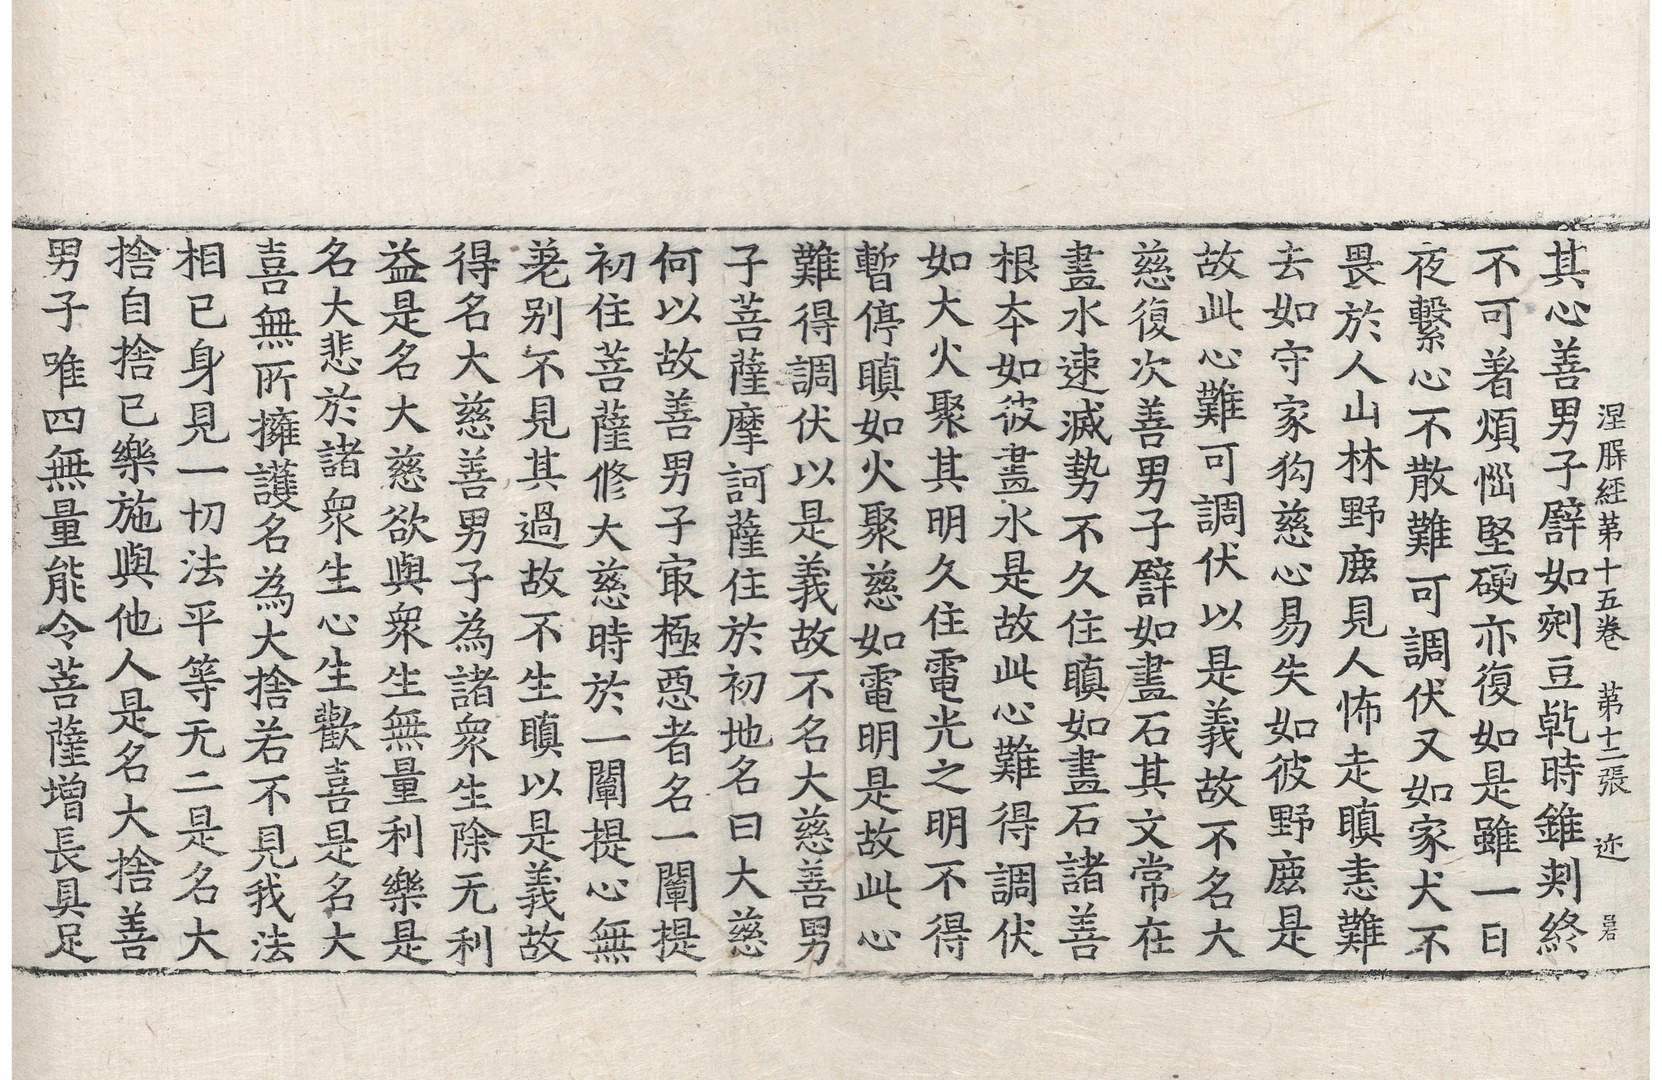 涅槃經第十五卷 第十二張 迹
其心善男子譬如剜豆乹時錐刾終
不可著煩惱堅硬亦復如是雖一日
夜繫心不散難可調伏又如家犬不
畏於人山林野鹿見人怖走瞋恚難
去如守家狗慈心易失如彼野鹿是
故此心難可調伏以是義故不名大
慈復次善男子譬如畫石其文常在
畫水速滅勢不久住瞋如畫石諸善
根本如彼畫水是故此心難得調伏
如大火聚其明久住電光之明不得
暫停瞋如火聚慈如電明是故此心
難得調伏以是義故不名大慈善男
子菩薩摩訶薩住於初地名曰大慈
何以故善男子㝡極惡者名一闡提
初住菩薩修大慈時於一闡提心無
差別不見其過故不生瞋以是義故
得名大慈善男子為諸眾生除无利
益是名大慈欲與眾生無量利樂是
名大悲於諸眾生心生歡喜是名大
喜無所擁護名為大捨若不見我法
相己身見一切法平等无二是名大
捨自捨己樂施與他人是名大捨善
男子唯四無量能令菩薩增長具足